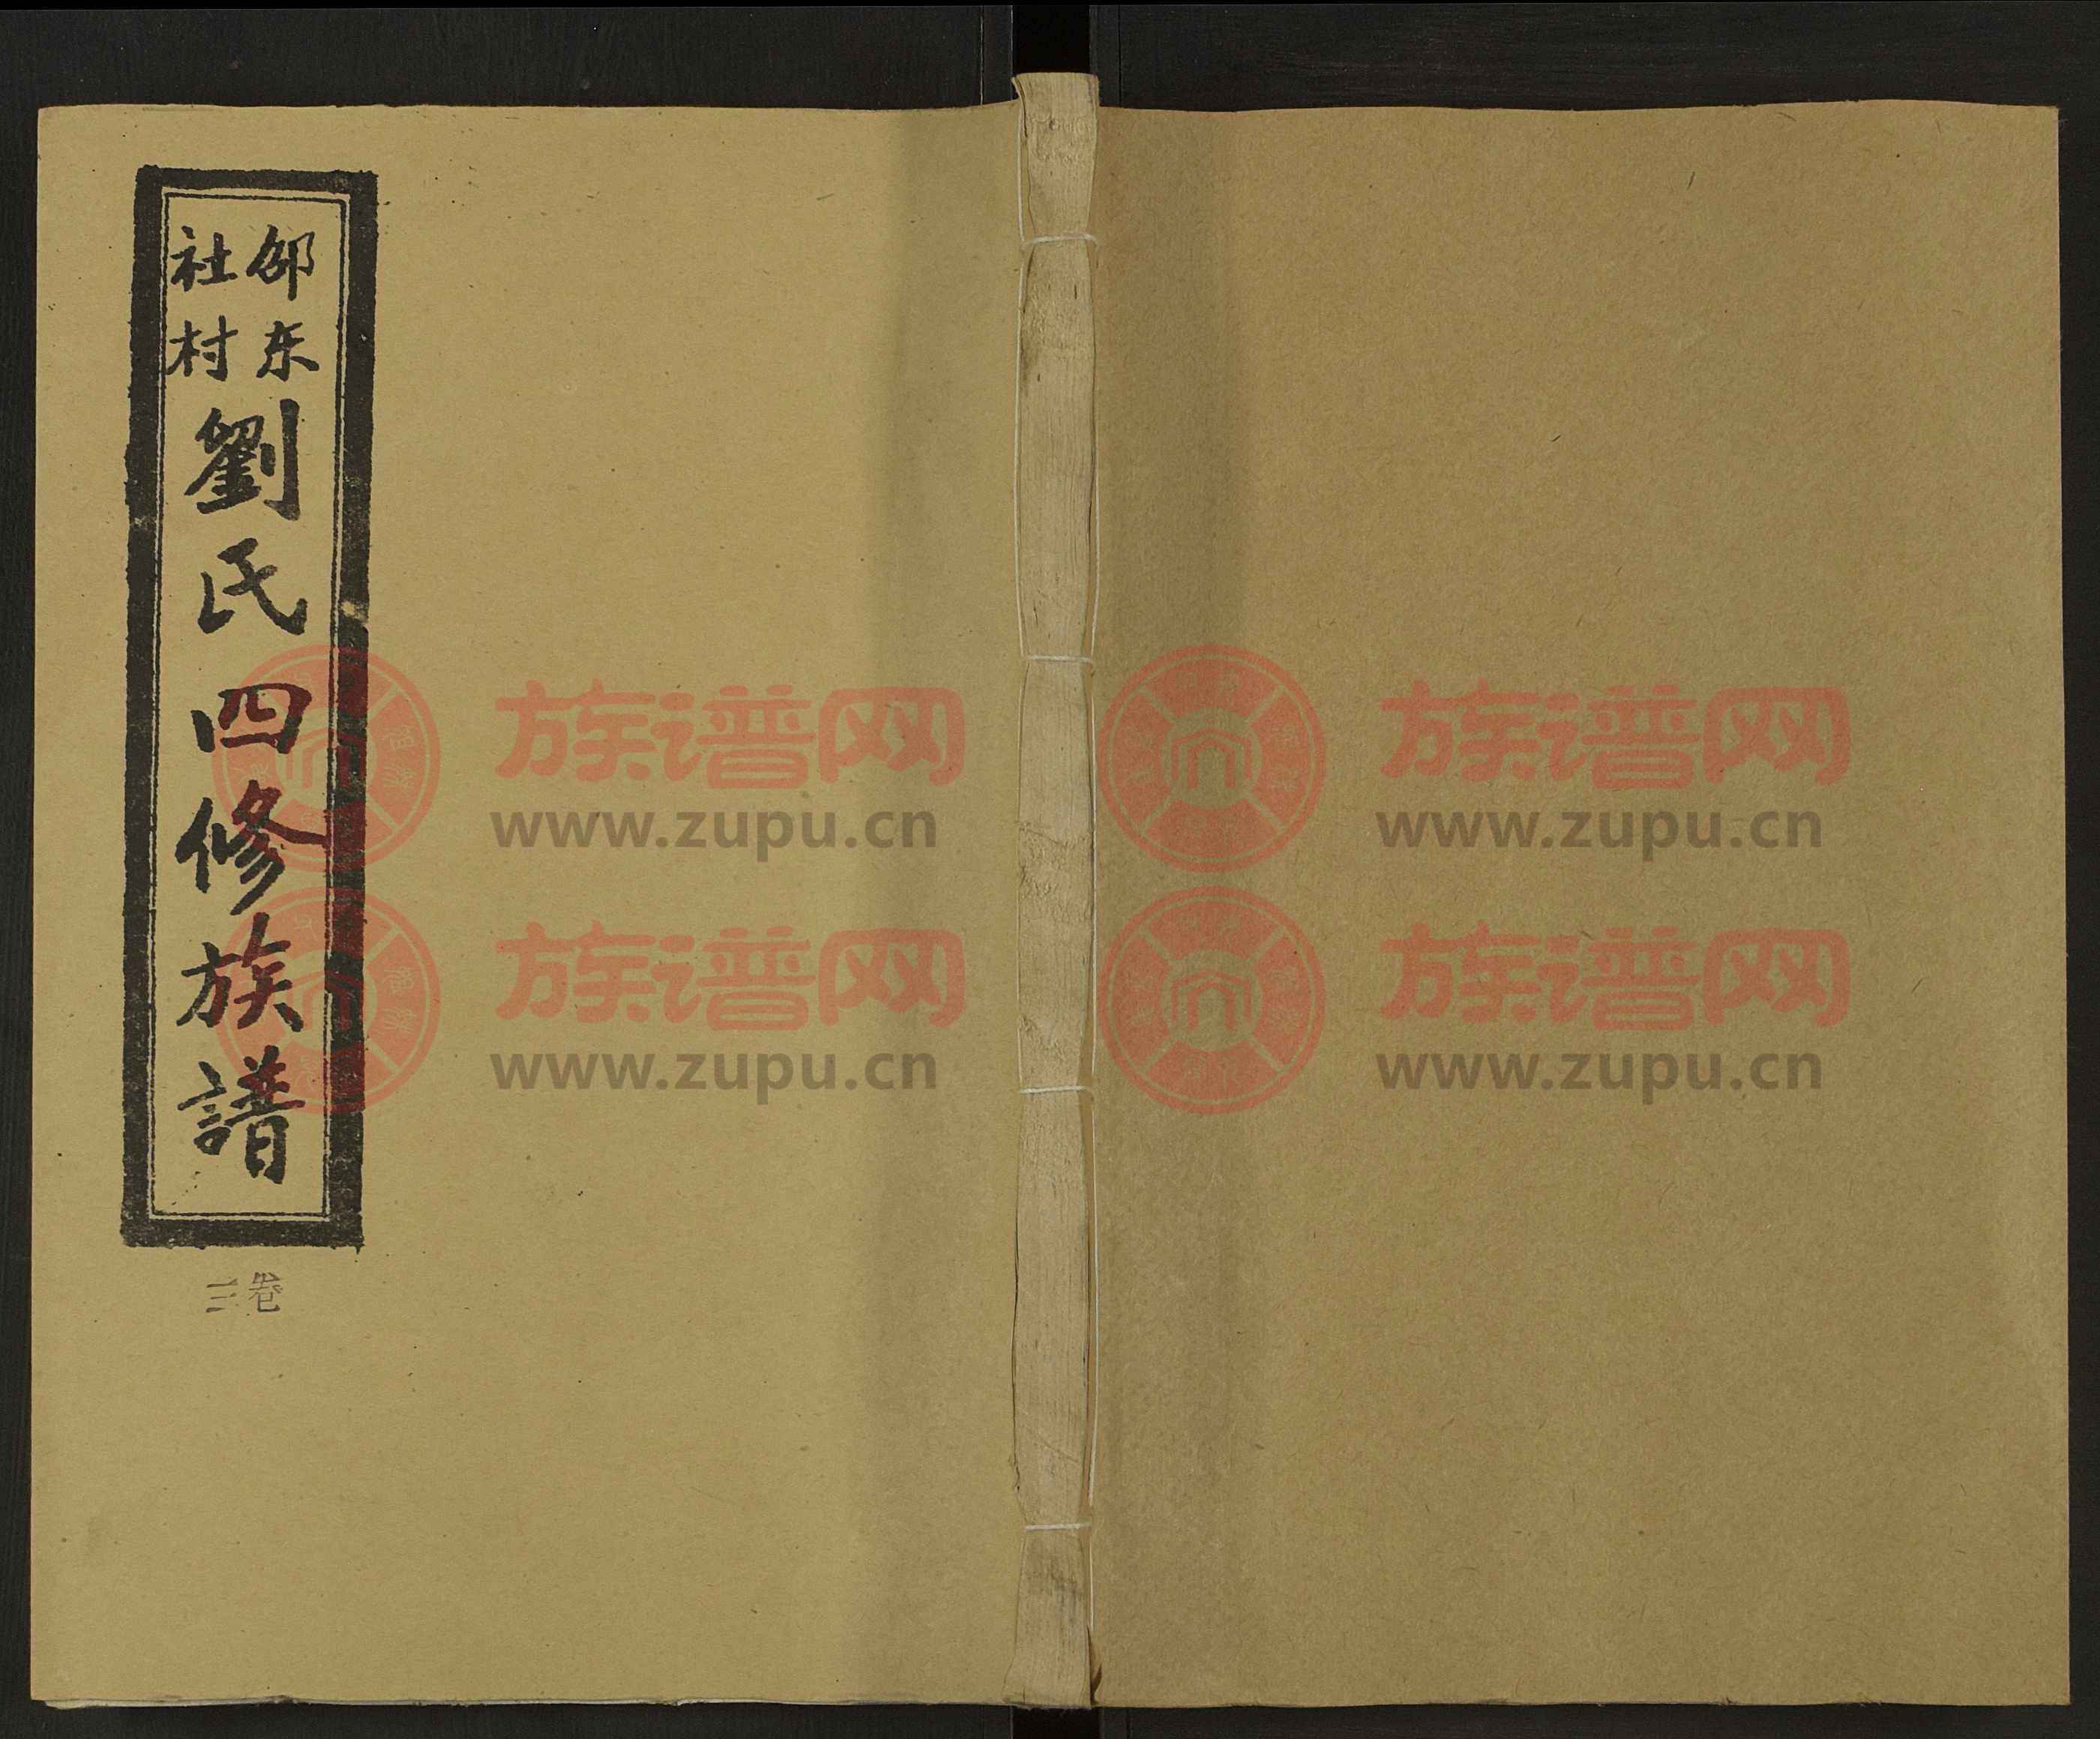 邵东
社村
劉氏四修族譜
卷三
族谱网
www.zupu.cn
族谱网
www.zupu.cn
族谱网
www.zupu.cn
族谱网
www.zupu.cn